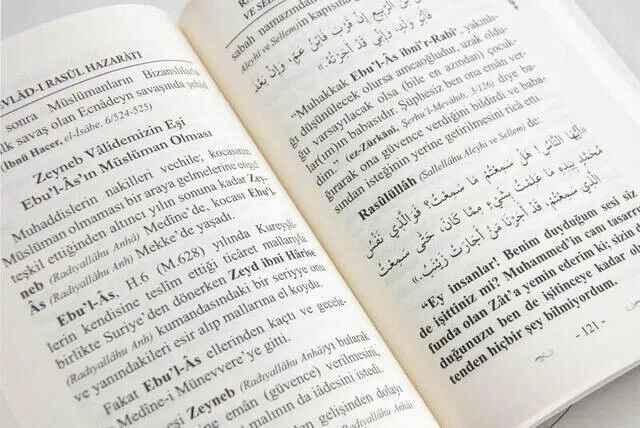 EVLÂD-I RASUL HAZARÂTI
sonra Müslümanların Bizanslılarla
ilk savaş olan Ecnâdeyn savaşında şehid
(İbnü Hacer, el-İsâbe, 6/524-525)
Zeyneb Vâlidemizin Eşi
Ebu'l-Âs'ın Müslüman Olması
Muhaddislerin nakilleri vechile; kocasının
Müslüman olmaması bir araya gelmelerine engel
teşkil ettiğinden altıncı yılın sonuna kadar Zey-
neb (Radıyallâhu Anhâ) Medîne'de, kocası Ebu'l-
Âs (Radıyallâhu Anh) Mekke'de yaşadı.
Ebu'l-Âs, H.6 (M.628) yılında Kureyşli-
lerin kendisine teslim ettiği ticâret mallarıyla
birlikte Suriye'den dönerken Zeyd ibni Hârise
(Radıyallâhu Anh) kumandasındaki bir seriyye onu
ve yanındakileri esir alıp mallarına el koydu.
Fakat Ebu'l-Âs ellerinden kaçtı ve gece-
Medîne-i Münevvere'ye gitti.
eşi Zeyneb (Radıyallâhu Anhâ)yı bularak
emân (güvence) verilmesini,
malının da iâdesini istedi.
gelişinden dolayı
(Radıyallâhu Anhâ)
VE SELLEM
sabah namazından
Aleyhi ve Sellem)in kapısın
بْنِ الرَّبِيعِ إِنْ قَرُبَ فَابْنُ عَمٍّ، وَإِنْ بَعُدَ
فَأَبُو وَلَدٍ، وَإِنِّي قَدْ أَجَرْتُهُ.»
"Muhakkak Ebu'l-Âs ibni'r-Rabi', yakınlı-
ğı düşünülecek olursa amcaoğludur, uzak oldu-
ğu varsayılacak olsa (bile en azından) çocuk-
lar(ım)ın babasıdır. Şüphesiz ben ona emân ver-
dim." (ez-Zürkânî, Şerhu'l-Mevâhib, 3/126) diye ba-
ğırarak ona güvence verdiğini bildirdi ve baba-
sından isteğinin yerine getirilmesini ricâ etti.
Rasûlüllâh (Sallellâhu Aleyhi ve Sellem) de:
«أَيُّهَا النَّاسُ! هَلْ سَمِعْتُمْ مَا سَمِعْتُ؟ فَوَالَّذِي نَفْسُ
مُحَمَّدٍ بِيَدِهِ مَا عَلِمْتُ بِشَيْءٍ مِمَّا كَانَ، حَتَّى سَمِعْتُ
الَّذِي سَمِعْتُمْ، قَدْ أَجَرْنَا مَنْ أَجَارَتْ زَيْنَبُ.»
"Ey insanlar! Benim duyduğum sesi siz
de işittiniz mi? Muhammed'in canı tasarru-
funda olan Zât'a yemin ederim ki; sizin
duğunuzu ben de işitinceye kadar o
tenden hiçbir şey bilmiyordum.
- 121 -